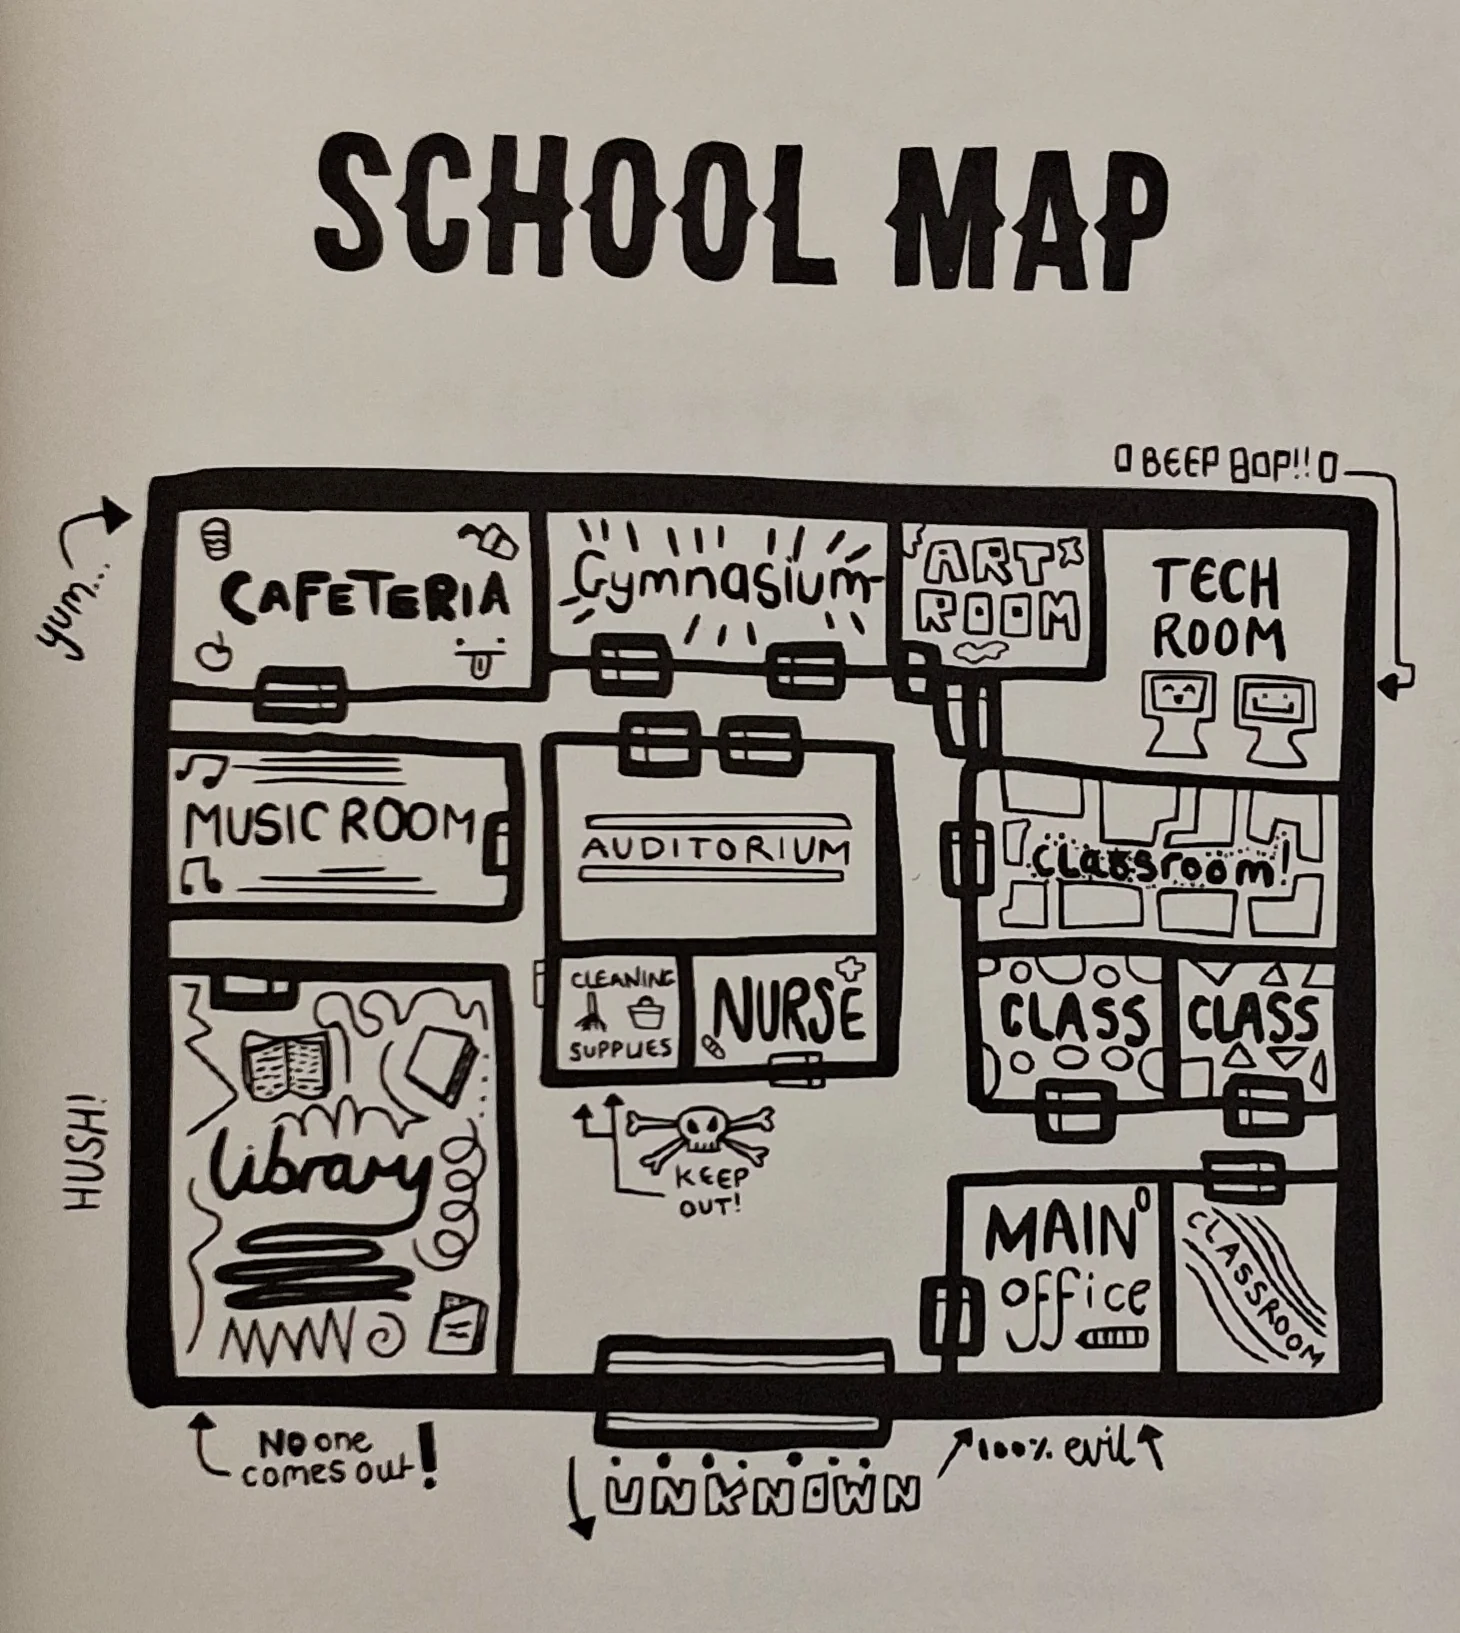 SCHOOL MAP
0 BEEP BOP!! 0
yum...
CAFETERIA
Gymnasium
ART
ROOM
TECH
ROOM
MUSIC ROOM
AUDITORIUM
classroom!
CLEANING
SUPPLIES
NURSE
CLASS
CLASS
library
HUSH!
KEEP
OUT!
MAIN
office
CLASSROOM
No one
comes out!
UNKNOWN
100% evil